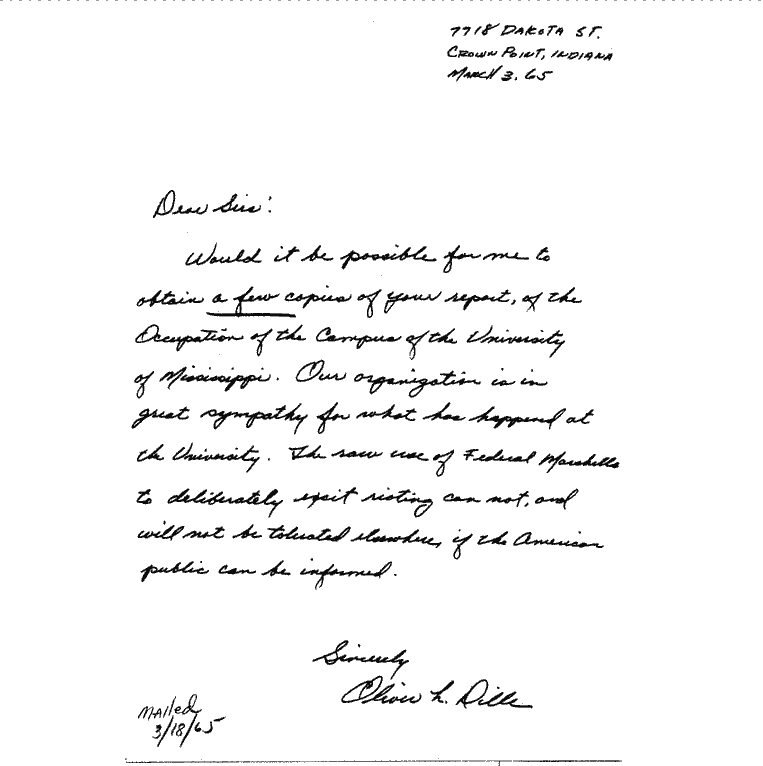 7718 DAKOTA ST.
CROWN POINT, INDIANA
MARCH 3, 65
Dear Sirs:
Would it be possible for me to
obtain a few copies of your report, of the
Occupation of the Campus of the University
of Mississippi. Our organization is in
great sympathy for what has happened at
the University. The raw use of Federal Marshells
to deliberately exsit rioting can not, and
will not be tolerated elsewhere, if the American
public can be informed.
Sincerely
Oliver L. Dille
Mailed
3/18/65